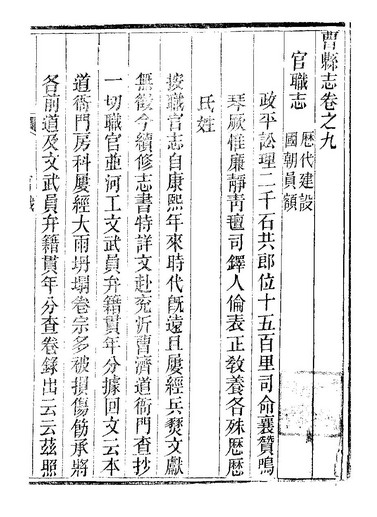 曹縣志卷之九
官職志 歷代建設
國朝員額
政平訟理二千石共郎位十五百里司命襄贊鳴
琴厥惟廉靜靑氊司鐸人倫表正敎養各殊歷歷
氏姓
按職官志自康熙年來時代旣遠且屢經兵燹文獻
無徵今續修志書特詳文赴兖沂曹濟道衙門查抄
一切職官並河工文武員弁籍貫年分據回文云本
道衙門房科屢經大雨坍塌卷宗多被損傷勒承將
各前道及文武員弁籍貫年分查卷錄出云云茲照